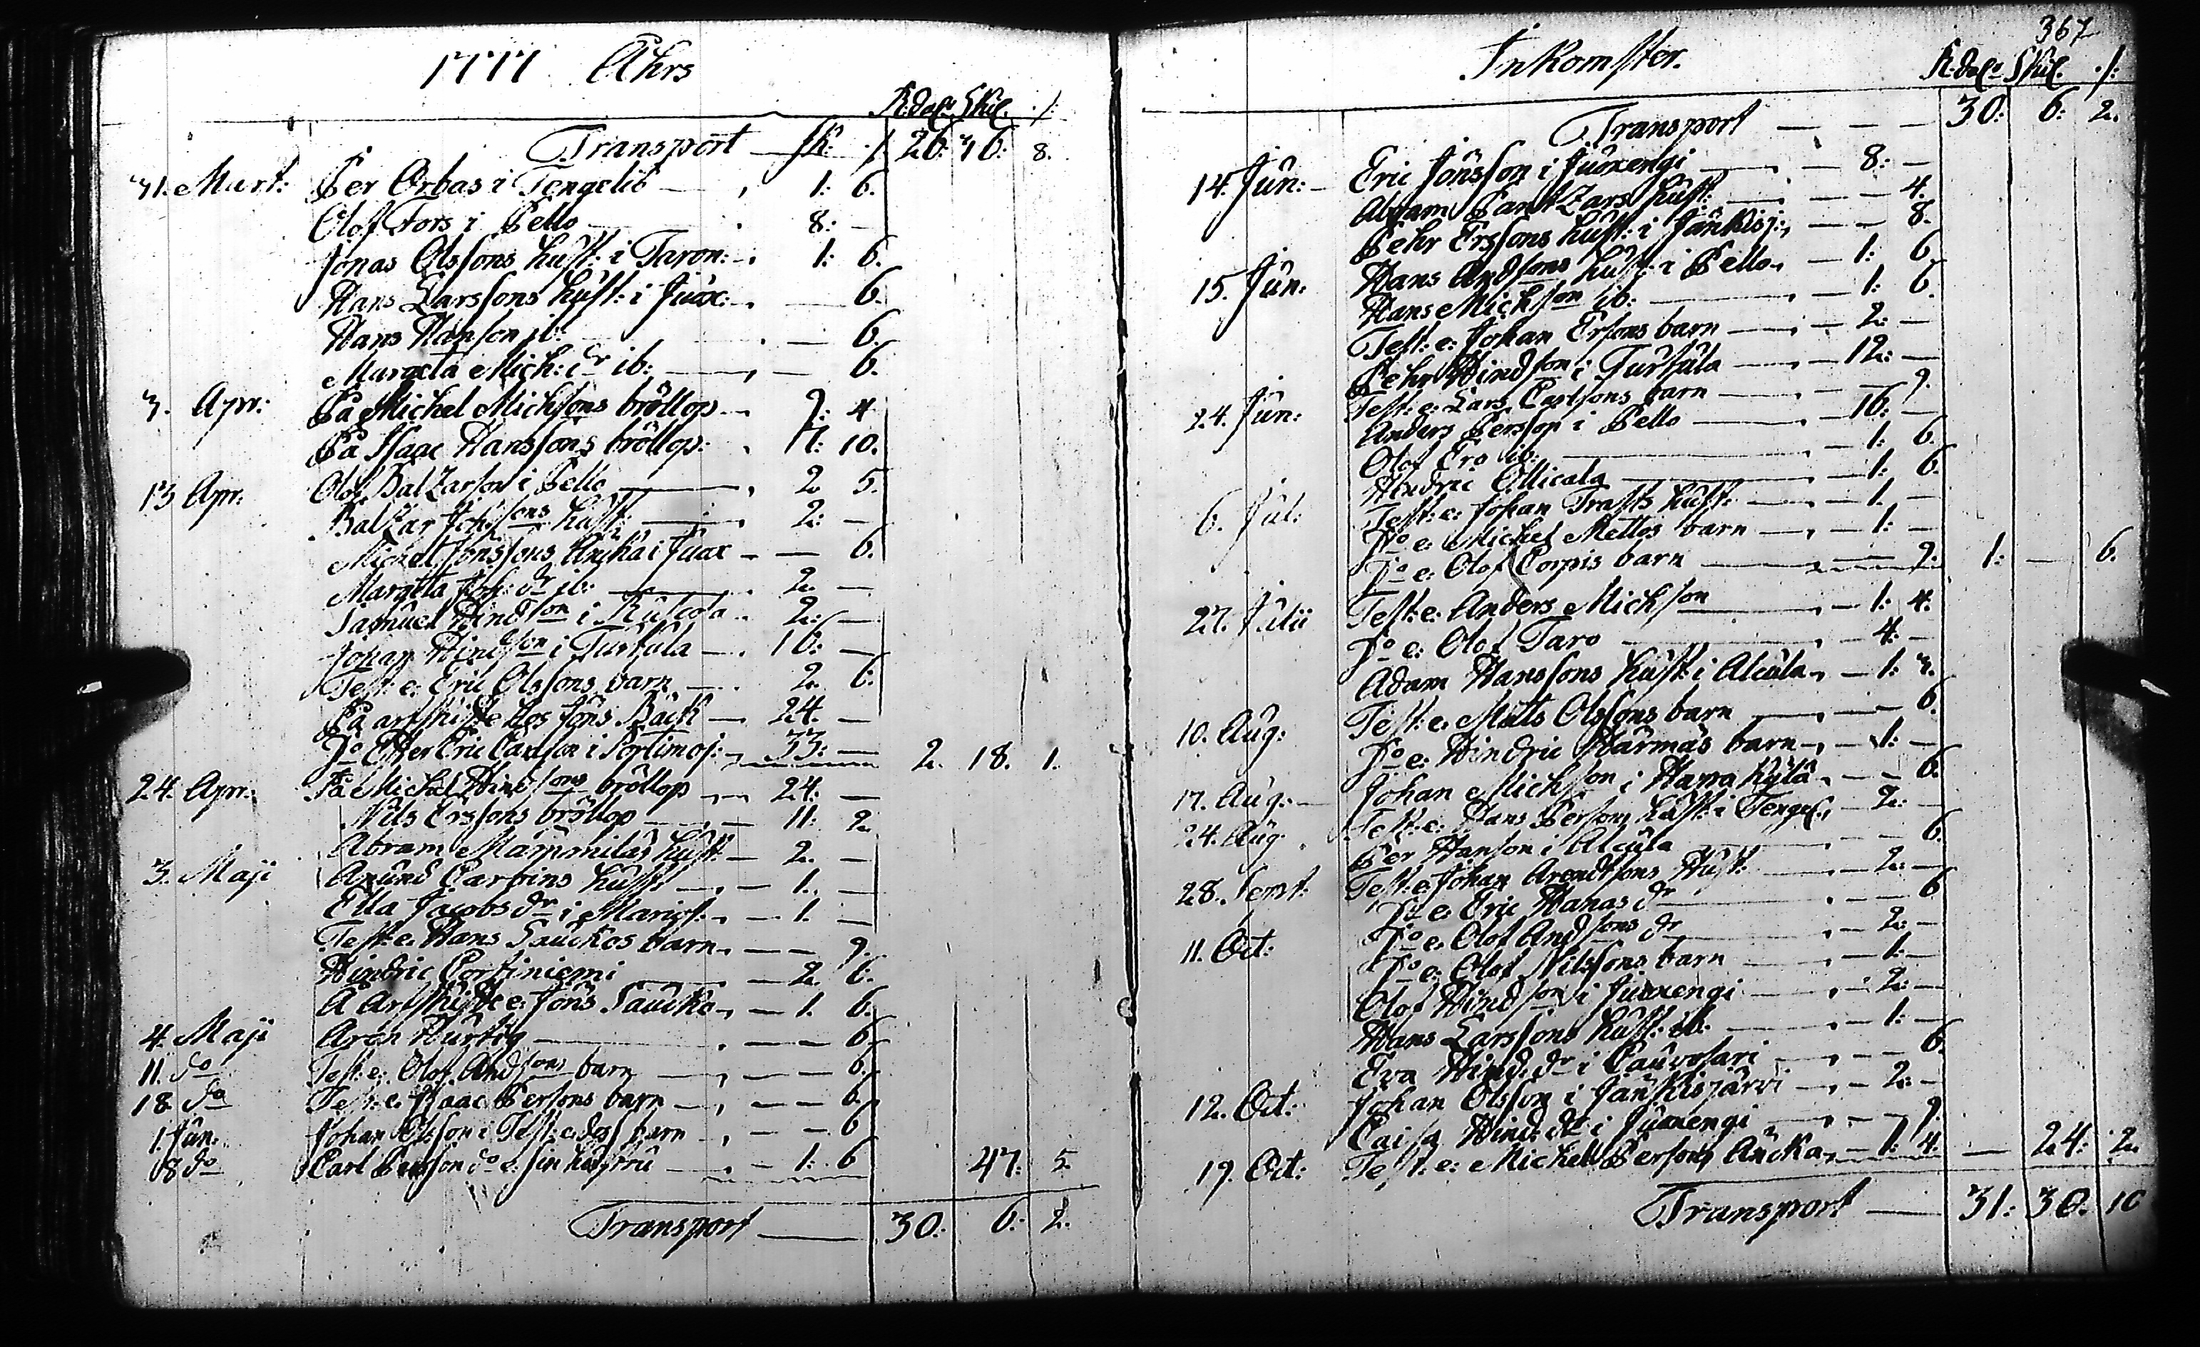 1777 Åhrs
R.dal: Skil. ./.
Transport — sk: ./. 26: 36: 8.
31. Mart: Per Orbas i Tengelib — , 1: 6.
Olof Fors i Pello — . 8: —
Jonas Olssons hust: i Taron: — . 1: 6.
Hans Larssons hust: i Juox: . — 6.
Hans Hanson ib: . — 6.
Margeta Mich: dr ib: — , — 6.
3. Apr: På Michel Michsons bröllop — . 9: 4
På Isaac Hanssons bröllop: . 17: 10.
13 Apr: Olof Baltzarson i Pello — , 2 5.
Baltzar Joh:sons hust: — , 2: —
Michel Jonssons i Juox — — 6.
Margeta Joh: dr ib: — 2. —
Samuel Hindson i — . 2: —
Johan Hindson i Turtula — . 16: —
Test: e: Eric Olssons barn — . 2. 6:
På arfskifte hos Jöns Bäck — , 24. —
Do Efter Eric Carlson i Portimoj: — , 33: — 2. 18. 1.
24. Apr: På Michel Hindsons bröllop — , 24: —
Nils Erssons bröllop — , 11: 2
Abram Mämmiläs hust: — 2. —
3. Maji Anund Carpins hust: — , — 1. —
Ella Jacobs dr i Mariosr: , — 1. —
Test: e: Hans Lauckos barn . — — 9.
Hindric Portiniemi — 2. 6.
Å Arfskifte e: Jöns Laucko , — 1. 6.
4. Maji Aron Hurtig — . — — 6.
11. do Test: e: Olof Andsons barn — , — — 6.
18 do Test: e: Isaac Persons barn — , — — 6.
1. Jun: Johan Olsson i Test: e: dess barn , — — 6
8 do Carl Persson do e: sin hustru — . — 1: 6 47: 5.
Transport — 30: 6: 2.
367
Inkomster.
R.dal: Skil. ./.
Transport — — — 30: 6: 2.
14. Jun: — Eric Jönsson i Juoxengi — , — 8: —
Abram Pantzars hust: — , — — 4.
Pehr Erssons hust: i Jänkisj: , — — 8.
15. Jun: Hans Andsons hust: i Pello , — 1: 6.
Hans Michson ib: — , — 1: 6.
Test: e: Johan Ersons barn — , — 2: —
Pehr Hindson i Turtula — — 12: —
24. Jun: Test: e: Lars Carlsons barn — , — — 9.
Anders Persson i Pello — , — 16: —
Olof Ero ib: — , — 1: 6.
Hindric Ollicala — — 1: 6.
6. Jul: Test: e: Johan Trasts hust: — , — 1. —
Do e: Michel Mettos barn — , — 1: —
Do e: Olof Corpis barn — 9: 1: — 6.
27. Julii Test: e: Anders Michson — , — 1: 4.
Do e: Olof Taro — , — 4: —
Adam Hanssons hust: i Alcula , — 1: 3.
10. Aug: Test: e: Matts Olssons barn — , — 6.
Do e: Hindric Harmas barn , — 1: —
17. Aug: — Johan Michson i Harra Kylä . — — 6.
24. Aug. Test: e: Hans Persons hust: i Tengel: , — 2: —
Per Hanson i Alcula — — 6.
28. Sept: Test: e: Johan Arendtsons Hust: — , — 2: —
Do e: Eric Hanas dr — . — — 6
11. Oct: Do e: Olof Andsons dr — , — 2: —
Do e: Olof Nilssons barn — , — 1: —
Olof Hindson i Juoxengi — , — 2: —
Hans Larssons hust: ib: — , — 1: —
Eva Hind: dr i Cauvosari — , — — 6.
12. Oct: Johan Olsson i Jänkisjärvi — , — 2: —
Caisa Hind: dr i Juoxengi — , — — 9
19. Oct: Test: e: Michel Persons Äncka , — 1: 4. — 24: 2.
Transport — 31: 30. 10